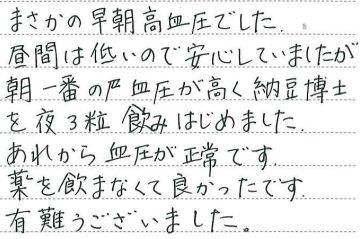 まさかの早朝高血圧でした.
昼間は低いので安心していましたが
朝一番の血圧が高く納豆博士
を夜3粒飲みはじめました.
あれから血圧が正常です.
薬を飲まなくて良かったです.
有難うございました。